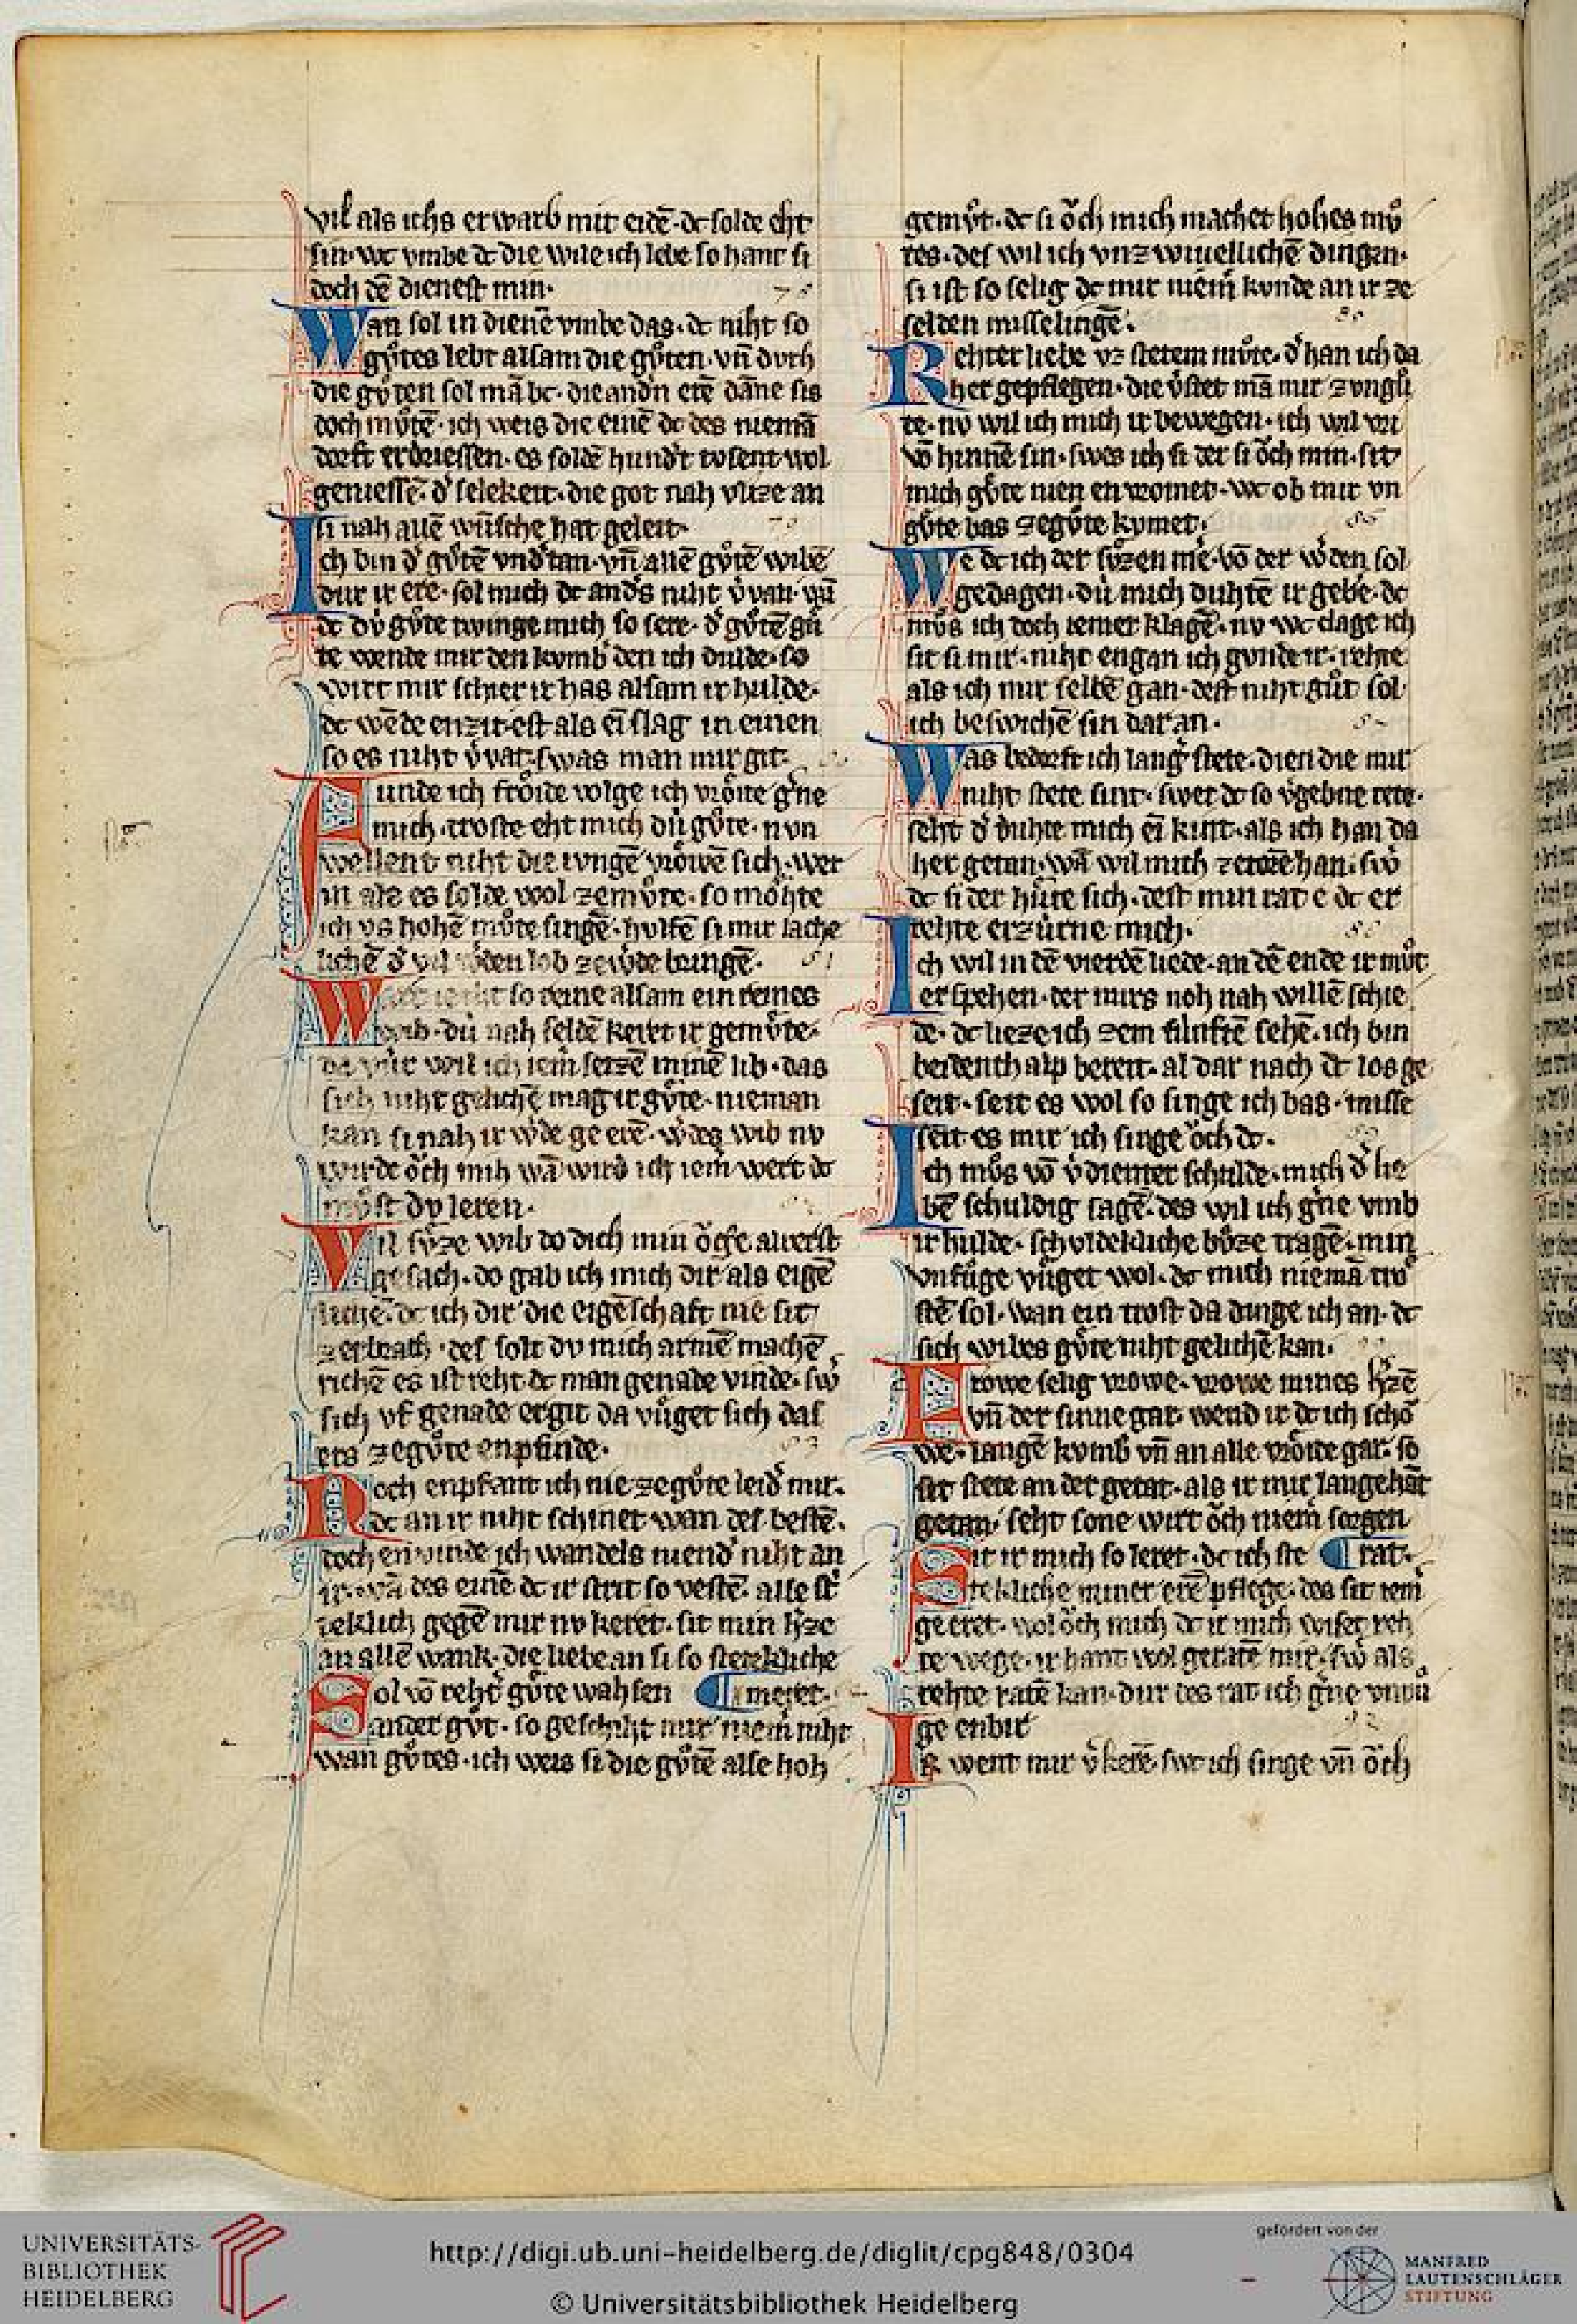 vil als ichs erwarb mit eidē · dc solde eht
sin · wc vmbe dc die wile ich lebe so hant si
doch dē dienest min ·
Wan sol in dienē vmbe das · dc niht so
gůtes lebt alsam die gůten · vn̄ dvrh
die gůten sol mā bc · die andn̄ erē dāne sis
doch můtē · ich weis die einē dc des niemā
dorft erdriessen · es soldē hund't tvsent wol
geniessē · d' selekeit · die got nah vlize an
si nah allē wūsche hat geleit ·
Ich bin d' gůtē vnd'tan · vn̄ allē gůtē wibē
dur ir ere · sol mich dc and's niht v'van · vn̄
dc dv́ gůte twinge mich so sere · d' gůtē gů
te wende mir den kvmb' den ich dulde · so
wirt mir schier ir has alsam ir hulde ·
dc wēde enzit · est als eī slag in einen
so es niht v'vat · swas man mir git ·
Funde ich frőide volge ich vrőite g'ne
mich · troste eht mich dú gůte · nvn
wellent niht die ivngē vrőwē sich · wer
in als es solde wol zemůte · so mőhte
ich vs hohē můte singē · hvlfē si mir lache
lichē d' vil w'den lob zew'de bringē ·
Wart ie iht so reine alsam ein reines
wib · dú nah seldē keret ir gemůte ·
da vúr wil ich iem' setzē minē lib · das
sich niht gelichē mag ir gůte · nieman
kan si nah ir w'de ge erē · w'des wib nv
wirde őch mih wā wird ich iem' wert dc
můst dv leren ·
Vil sůze wib do dich min őge alrerst
gesach · do gab ich mich dir als eigē
lichē · dc ich dir die eigēschaft nie sit
zerbrach · des solt dv mich armē machē
richē es ist reht · dc man genade vinde · sw'
sich vf genade ergit da vůget sich das
ers zegůte enpfinde ·
Noch enpfant ich nie zegůte leid' mir ·
dc an ir niht schinet wan des bestē ·
doch envinde ich wandels niend' niht an
ir · wā des einē dc ir strit so vestē · alle st
teklich gegē mir nv keret · sit min h'ze
an allē wank · die liebe an si so stetekliche
Sol vō reht' gůte wahsen ¶ meret ·
ander gůt · so geschiht mir niem' niht
wan gůtes · ich weis si die gůtē alse hoh
gemůt · dc si őch mich machet hohes mů
tes · des wil ich vnzwiuellichē dingen ·
si ist so selig dc mir niem' kvnde an ir ze
selden misselingē ·
Rehter liebe vz stetem můte · d' han ich da
her gepflegen · die v'stet mā mir zvngů
te · nv wil ich mich ir bewegen · ich wil vri
vō hinnē sin · swes ich si der si őch min · sit
mich gůte nien envromet · wc ob mir vn
gůte bas zegůte kvmet ·
We dc ich der sůzen me · vō der w'den sol
gedagen · dú mich duhtē ir gebē · dc
můs ich doch iemer klagē · nv wc clage ich
sit si mir · niht engan ich gvnde ir · rehte
als ich mir selbē gan · dest niht gůt sol
ich beswichē sin dar an ·
Was bedorft ich lang' stete · dien die mir
niht stete sint · swer dc so v'gebne tete ·
seht d' duhte mich eī kint · als ich han da
her getan · wā wil mich zetore han · sw'
dc si der hůte sich · dest min rat e dc er
rehte erzúrne mich ·
Ich wil in dē vierdē liede · an dē ende ir můt
erspehen · der mirs noh nah willē schie
de · dc lieze ich zem fúnftē sehē · ich bin
beidenthalp bereit · al dar nach dc los ge
seit · seit es wol so singe ich bas · misse
seit es mir ich singe őch dc ·
Ich můs vō v'dienter schulde · mich d' lie
bē schuldig sagē · des wil ich g'ne vmb
ir hulde · schvldekliche bůze tragē · min
vnfůge vůget wol · dc mich niemā trő
stē sol · wan ein trost da dinge ich an · dc
sich wibes gůte niht gelichē kan ·
Frowe selig vrowe · vrowe mines h'zē
vn̄ der sinne gar · wend ir dc ich schő
we · langē kvmb' vn̄ an alle vrőide gar · so
sit stete an der getat · als ir mir lange hāt
getan · seht sone wirt őch niem' sorgen
Sit ir mich so leret · dc ich ste ¶ rat ·
tekliche miner erē pflege · des sit iem'
geeret · wol őch mich dc ir mich wiset reh
te wege · ir hant wol geratē mir · sw' als
rehte ratē kan · dur des rat ich g'ne vnvů
ge enbir
Ir went mir v'kerē · swc ich singe vn̄ őch
UNIVERSITÄTS-
BIBLIOTHEK
HEIDELBERG
http://digi.ub.uni-heidelberg.de/diglit/cpg848/0304
© Universitätsbibliothek Heidelberg
gefördert von der
MANFRED
LAUTENSCHLÄGER
STIFTUNG